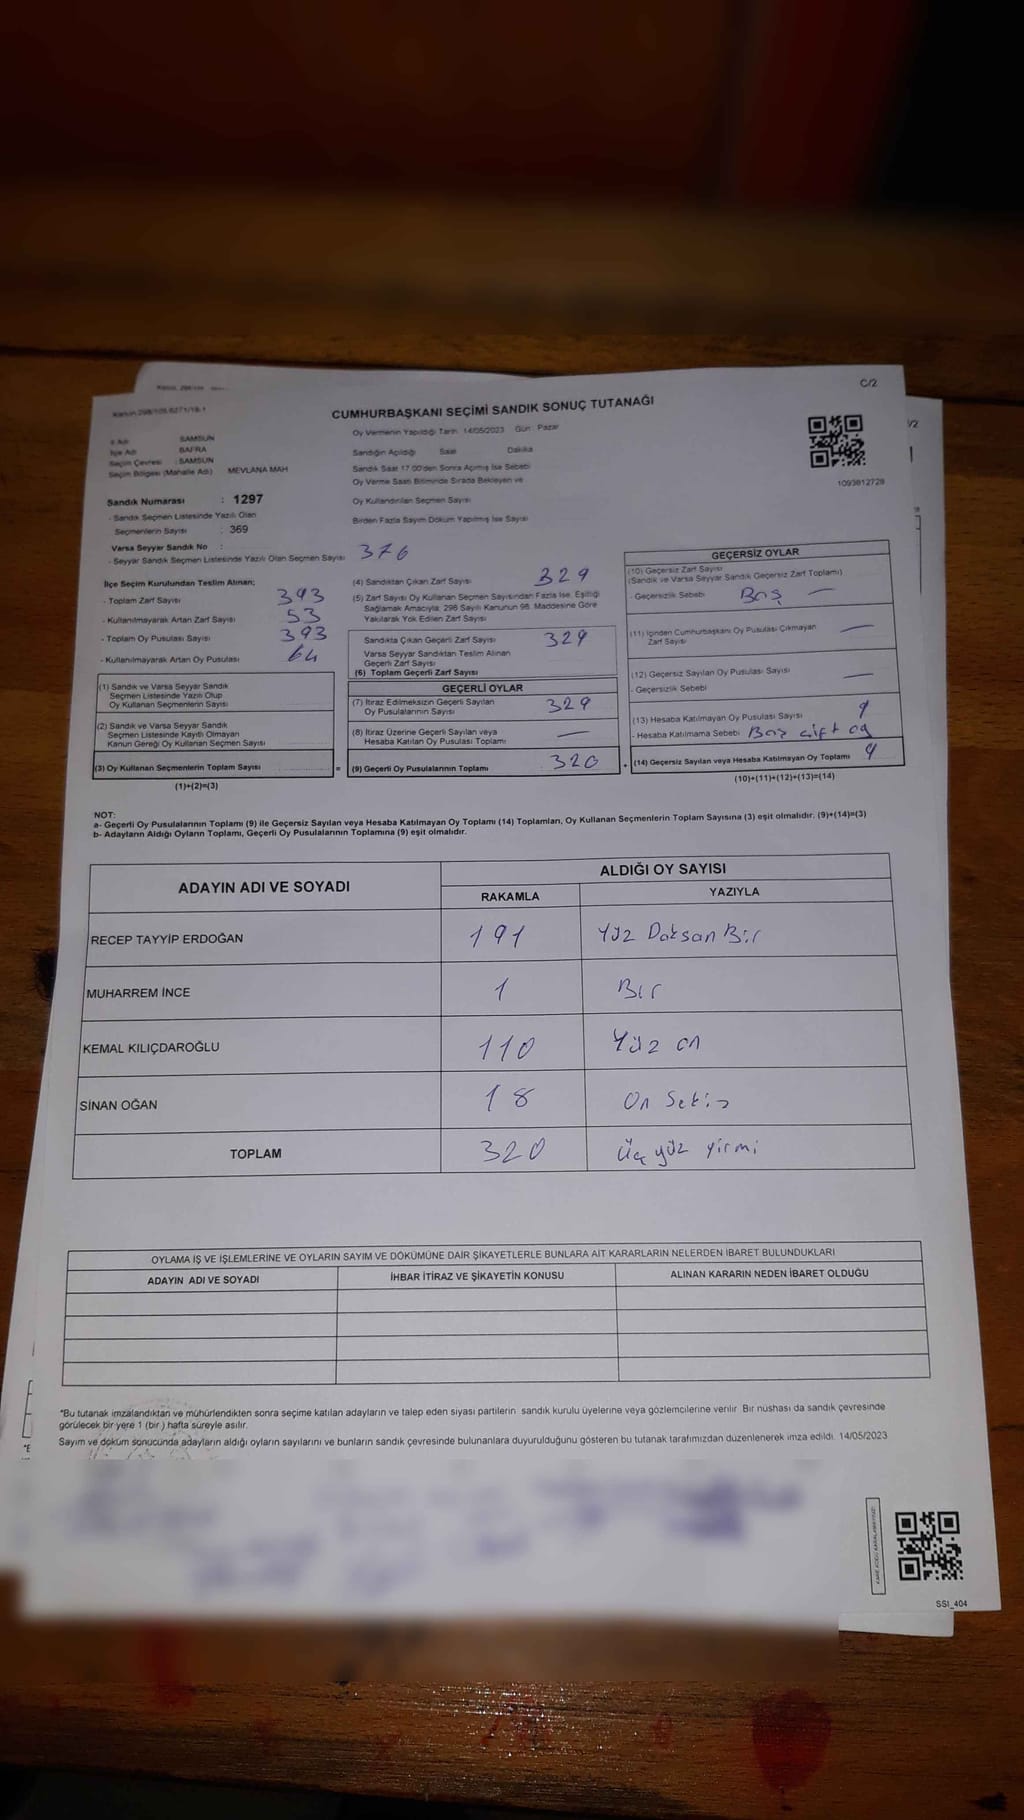 C/2
CUMHURBAŞKANI SEÇİMİ SANDIK SONUÇ TUTANAĞI
İl Adı SAMSUN
İlçe Adı BAFRA
Seçim Çevresi : SAMSUN
Seçim Bölgesi (Mahalle Adı) MEVLANA MAH
Sandık Numarası : 1297
- Sandık Seçmen Listesinde Yazılı Olan
Seçmenlerin Sayısı : 369
Varsa Seyyar Sandık No :
- Seyyar Sandık Seçmen Listesinde Yazılı Olan Seçmen Sayısı 376
Oy Vermenin Yapıldığı Tarih 14/05/2023 Gün : Pazar
Sandığın Açıldığı Saat Dakika
Sandık Saat 17:00'den Sonra Açımış İse Sebebi
Oy Verme Saati Bitiminde Sırada Bekleyen ve
Oy Kullandırılan Seçmen Sayısı
Birden Fazla Sayım Döküm Yapılmış İse Sayısı
1093812728
İlçe Seçim Kurulundan Teslim Alınan;
- Toplam Zarf Sayısı 393
- Kullanılmayarak Artan Zarf Sayısı 53
- Toplam Oy Pusulası Sayısı 393
- Kullanılmayarak Artan Oy Pusulası 64
(1) Sandık ve Varsa Seyyar Sandık
Seçmen Listesinde Yazılı Olup
Oy Kullanan Seçmenlerin Sayısı
(2) Sandık ve Varsa Seyyar Sandık
Seçmen Listesinde Kayıtlı Olmayan
Kanun Gereği Oy Kullanan Seçmen Sayısı
(3) Oy Kullanan Seçmenlerin Toplam Sayısı =
(1)+(2)=(3)
(4) Sandıktan Çıkan Zarf Sayısı 329
(5) Zarf Sayısı Oy Kullanan Seçmen Sayısından Fazla İse, Eşitliği
Sağlamak Amacıyla, 298 Sayılı Kanunun 98. Maddesine Göre
Yakılarak Yok Edilen Zarf Sayısı
Sandıkta Çıkan Geçerli Zarf Sayısı 329
Varsa Seyyar Sandıktan Teslim Alınan
Geçerli Zarf Sayısı
(6) Toplam Geçerli Zarf Sayısı
GEÇERLİ OYLAR
(7) İtiraz Edilmeksizin Geçerli Sayılan
Oy Pusulalarının Sayısı 329
(8) İtiraz Üzerine Geçerli Sayılan veya
Hesaba Katılan Oy Pusulası Toplamı —
(9) Geçerli Oy Pusulalarının Toplamı 320 +
GEÇERSİZ OYLAR
(10) Geçersiz Zarf Sayısı
(Sandık ve Varsa Seyyar Sandık Geçersiz Zarf Toplamı)
- Geçersizlik Sebebi Boş —
(11) İçinden Cumhurbaşkanı Oy Pusulası Çıkmayan
Zarf Sayısı —
(12) Geçersiz Sayılan Oy Pusulası Sayısı —
- Geçersizlik Sebebi
(13) Hesaba Katılmayan Oy Pusulası Sayısı 9
- Hesaba Katılmama Sebebi çift oy
(14) Geçersiz Sayılan veya Hesaba Katılmayan Oy Toplamı 9
(10)+(11)+(12)+(13)=(14)
NOT:
a- Geçerli Oy Pusulalarının Toplamı (9) ile Geçersiz Sayılan veya Hesaba Katılmayan Oy Toplamı (14) Toplamları, Oy Kullanan Seçmenlerin Toplam Sayısına (3) eşit olmalıdır. (9)+(14)=(3)
b- Adayların Aldığı Oyların Toplamı, Geçerli Oy Pusulalarının Toplamına (9) eşit olmalıdır.
ADAYIN ADI VE SOYADI ALDIĞI OY SAYISI
RAKAMLA YAZIYLA
RECEP TAYYİP ERDOĞAN 191 Yüz Doksan Bir
MUHARREM İNCE 1 Bir
KEMAL KILIÇDAROĞLU 110 Yüz on
SİNAN OĞAN 18 On Sekiz
TOPLAM 320 Üç yüz yirmi
OYLAMA İŞ VE İŞLEMLERİNE VE OYLARIN SAYIM VE DÖKÜMÜNE DAİR ŞİKAYETLERLE BUNLARA AİT KARARLARIN NELERDEN İBARET BULUNDUKLARI
ADAYIN ADI VE SOYADI İHBAR İTİRAZ VE ŞİKAYETİN KONUSU ALINAN KARARIN NEDEN İBARET OLDUĞU
*Bu tutanak imzalandıktan ve mühürlendikten sonra seçime katılan adayların ve talep eden siyasi partilerin sandık kurulu üyelerine veya gözlemcilerine verilir. Bir nüshası da sandık çevresinde
görülecek bir yere 1 (bir) hafta süreyle asılır.
Sayım ve döküm sonucunda adayların aldığı oyların sayılarını ve bunların sandık çevresinde bulunanlara duyurulduğunu gösteren bu tutanak tarafımızdan düzenlenerek imza edildi. 14/05/2023
SSI_404